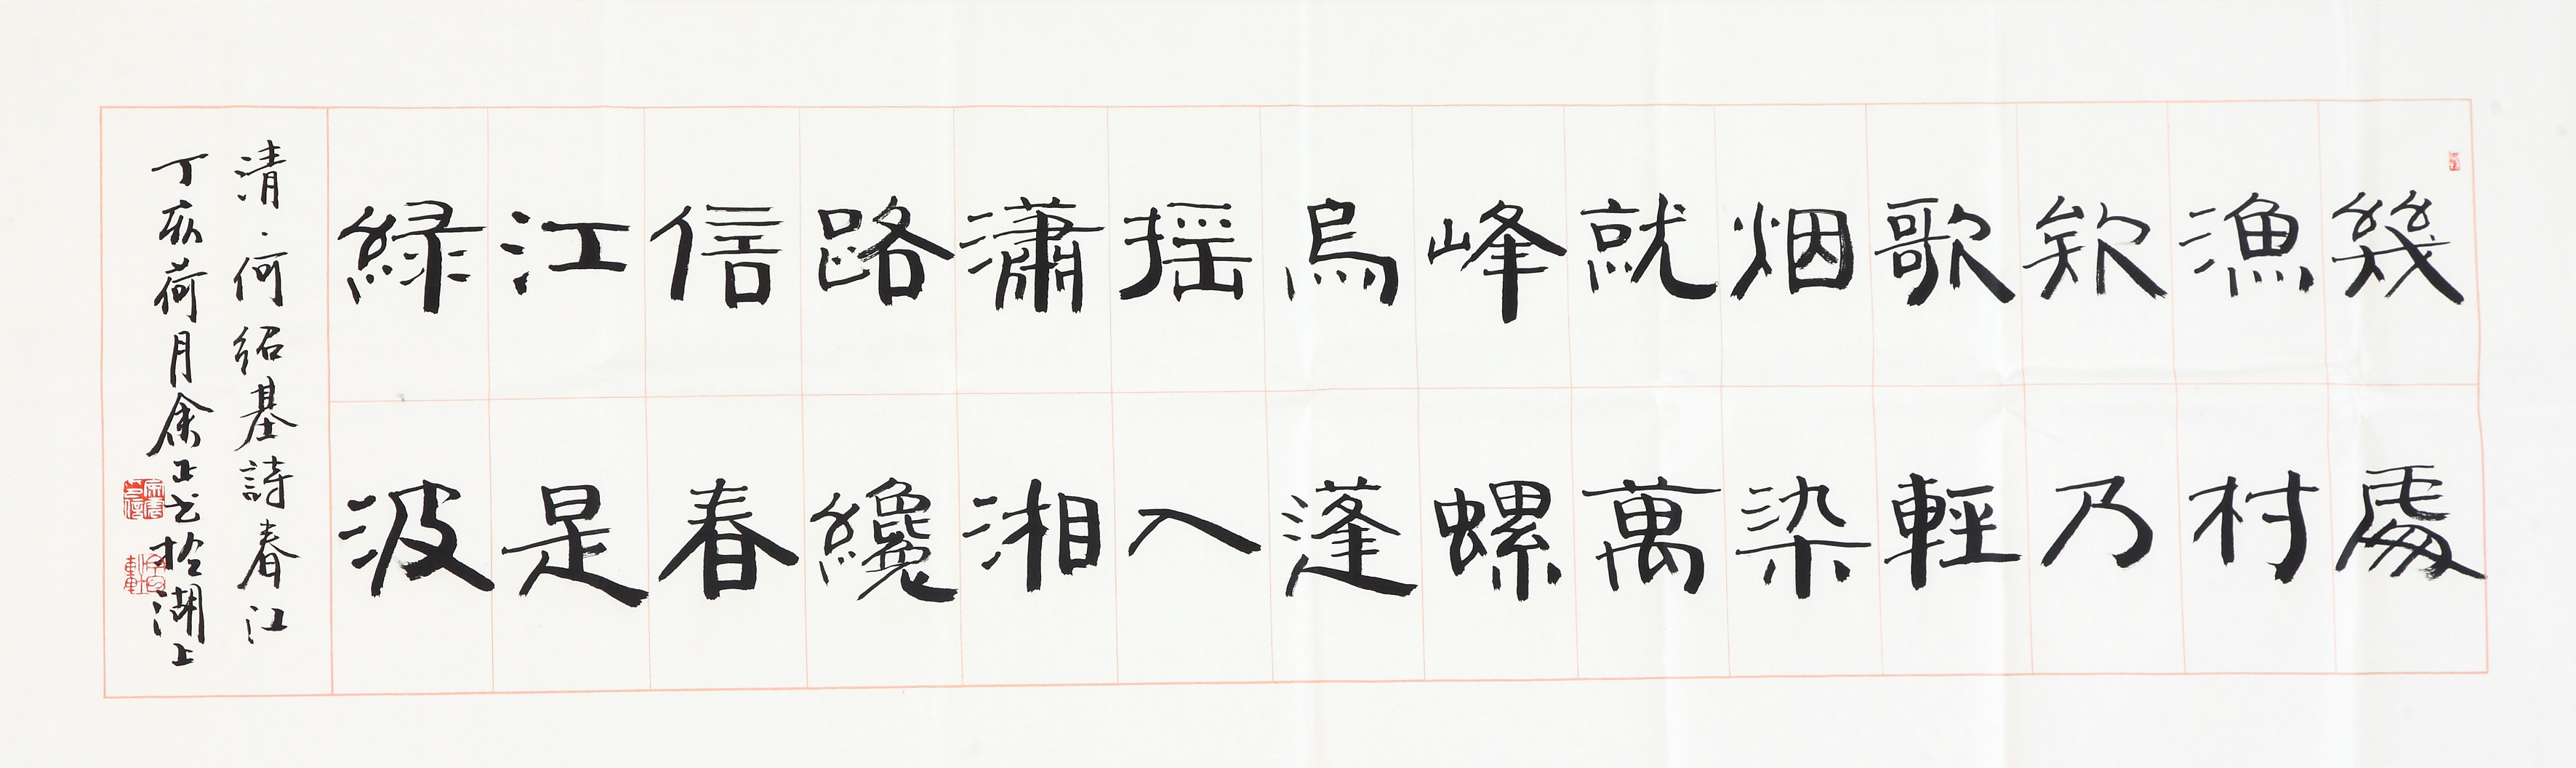 幾處
漁村
欸乃
歌輕
烟染
就萬
峰螺
烏蓬
摇入
瀟湘
路纔
信春
江是
綠波
清·何紹基詩春江
丁亥荷月余正书於湖上